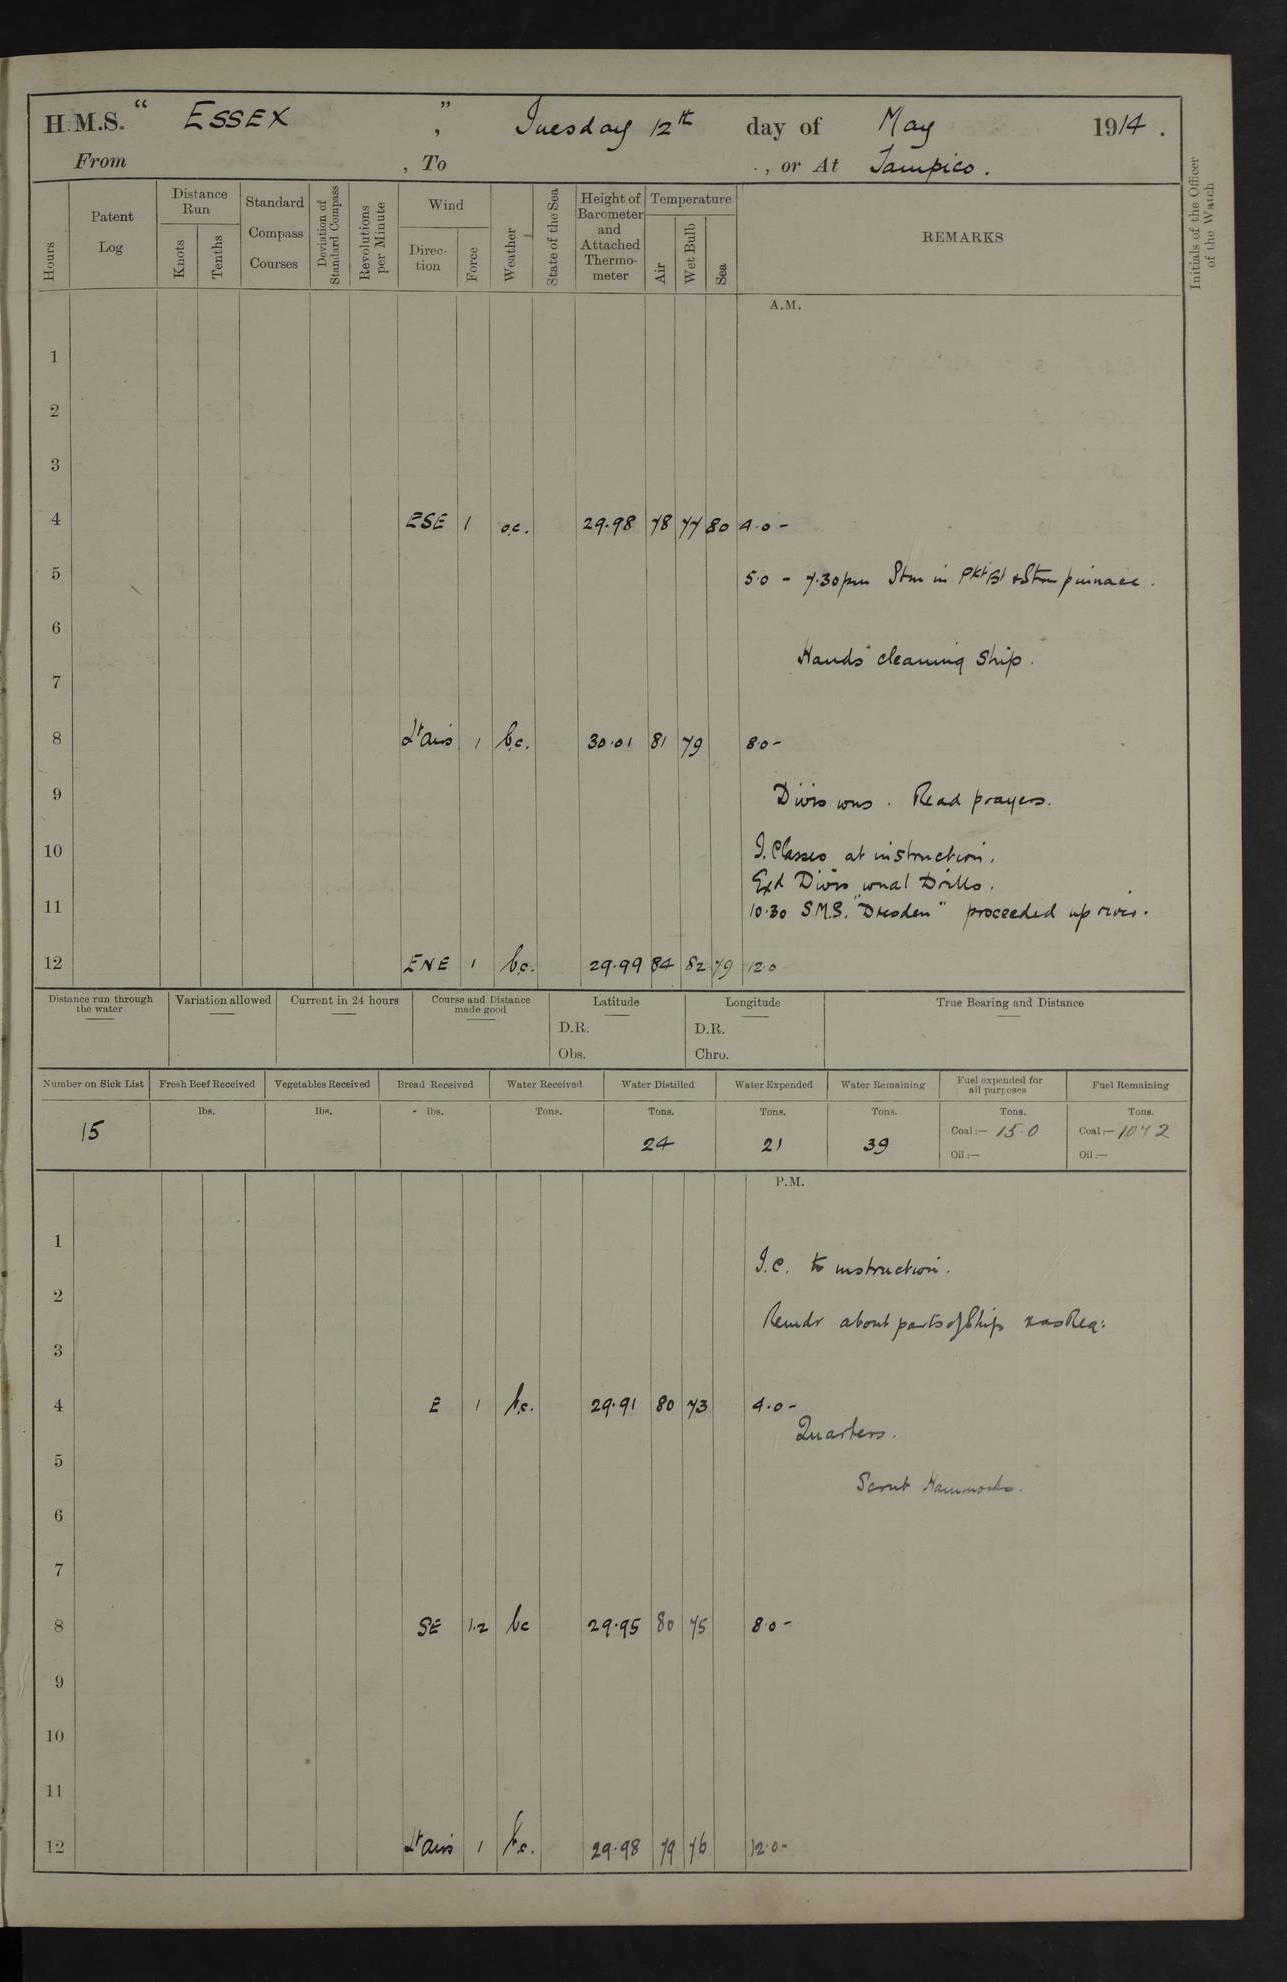 H.M.S. " ESSEX " , Tuesday 12th day of May 1914.
From , To , or At Tampico.
Hours
Patent Log
Distance Run
Knots
Tenths
Standard Compass Courses
Deviation of Standard Compass
Revolutions per Minute
Wind
Direction
Force
Weather
State of the Sea
Height of Barometer and Attached Thermometer
Temperature
Air
Wet Bulb
Sea
REMARKS
Initials of the Officer of the Watch
A.M.
1
2
3
4 ESE 1 o.c. 29.98 78 77 80 4.0 -
5 5.0 - 7.30pm Stm in Pkt Bt & Stm pinnace.
6
Hands cleaning Ship.
7
8 Lt airs 1 b.c. 30.01 81 79 8.0 -
9 Divisions. Read prayers.
10 I. Classes at instruction.
Exd Divisional Drills.
11 10.30 S.M.S. "Dresden" proceeded up river.
12 ENE 1 b.c. 29.99 84 82 79 12.0
Distance run through the water
Variation allowed
Current in 24 hours
Course and Distance made good
Latitude
D.R.
Obs.
Longitude
D.R.
Chro.
True Bearing and Distance
Number on Sick List
Fresh Beef Received
Vegetables Received
Bread Received
Water Received
Water Distilled
Water Expended
Water Remaining
Fuel expended for all purposes
Fuel Remaining
lbs. lbs. lbs. Tons. Tons. Tons. Tons. Tons. Tons.
15 24 21 39 Coal:— 15.0 Coal:— 1072
Oil:— Oil:—
P.M.
1
I.C. to instruction.
2
Remdr about parts of Ship & as Req:
3
4 E 1 b.c. 29.91 80 73 4.0 -
Quarters.
5
Scrub Hammocks.
6
7
8 SE 1.2 bc 29.95 80 75 8.0 -
9
10
11
12 Lt airs 1 b.c. 29.98 79 76 12.0 -